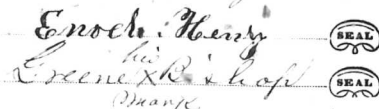 Enoch Henry SEAL
his
Greene X Bishop SEAL
mark